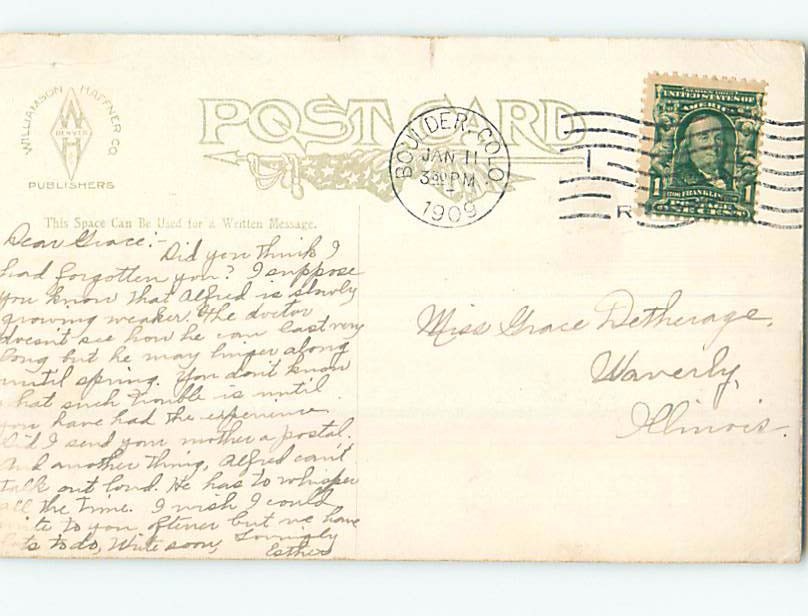 WILLIAMSON HAFFNER CO
W
DENVER
H
PUBLISHERS
POST CARD
BOULDER, COLO.
JAN 11
3 30 PM
1909
R
SERIES 1902
UNITED STATES OF
AMERICA
1 1
ONE CENT
This Space Can Be Used for a Written Message.
Dear Grace:- Did you think I
had forgotten you? I suppose
you know that Alfred is slowly
growing weaker. The doctor
doesn't see how he can last very
long but he may linger along
until spring. You don't know
what such trouble is until
you have had the experience.
Did I send your mother a postal.
And another thing, Alfred can't
talk out loud. He has to whisper
all the time. I wish I could
write to you oftener but we have
lots to do, Write soon, Lovingly
Esther
Miss Grace Detherage.
Waverly,
Illinois.